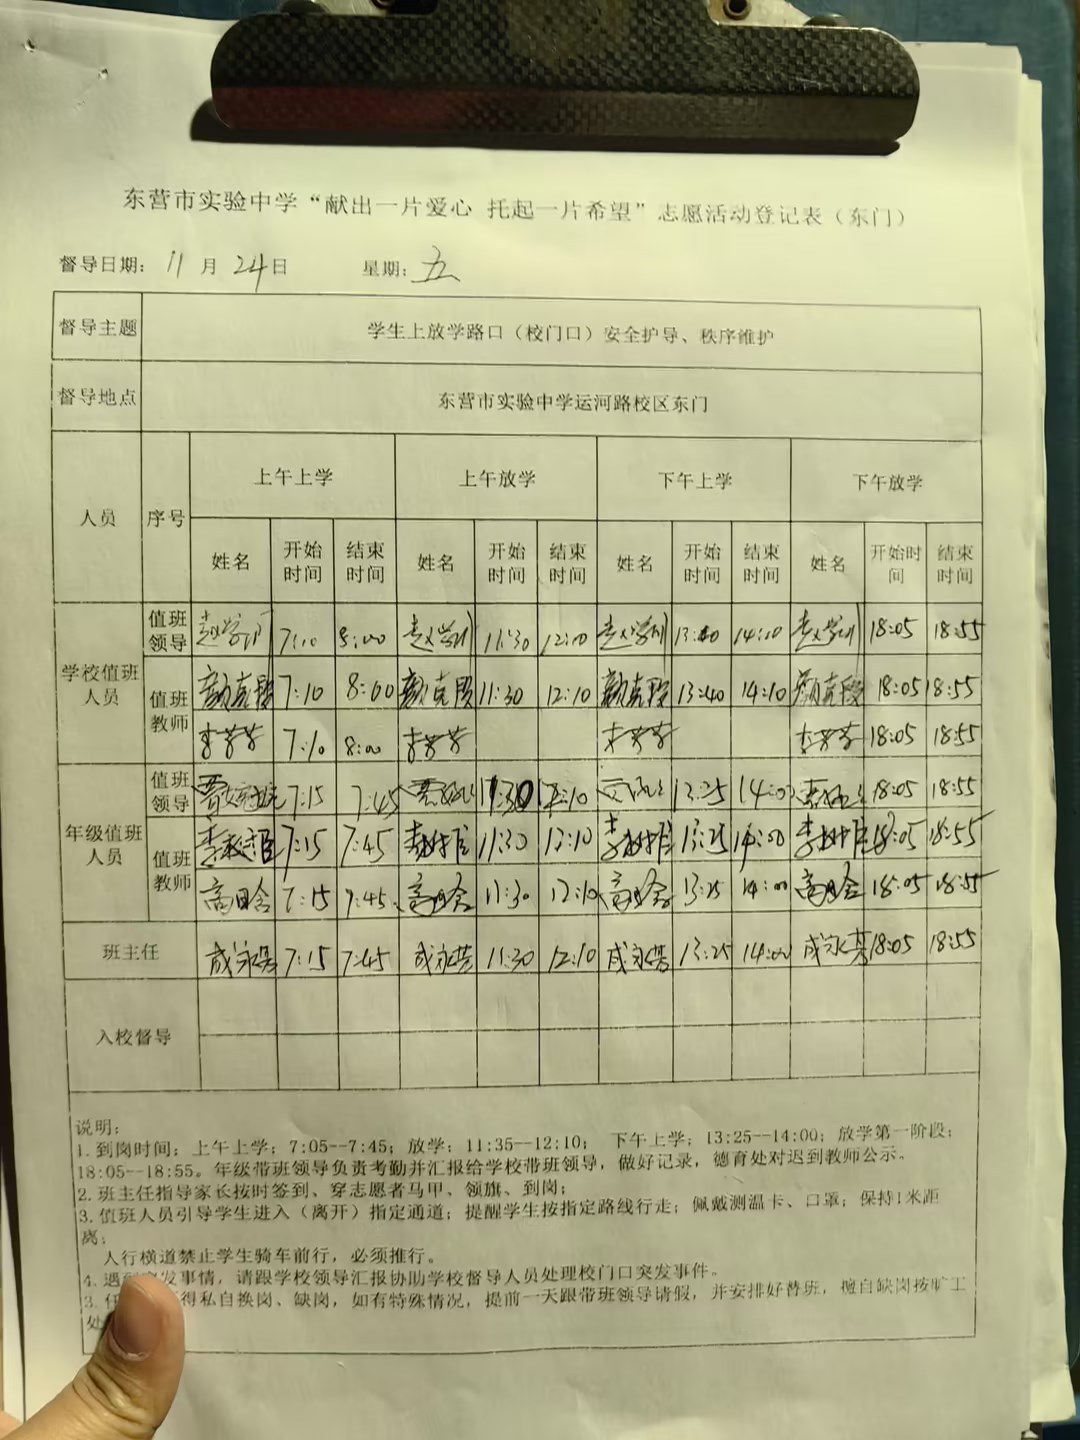 东营市实验中学“献出一片爱心 托起一片希望”志愿活动登记表（东门）
督导日期：11月24日 星期：五
督导主题 学生上放学路口（校门口）安全护导、秩序维护
督导地点 东营市实验中学运河路校区东门
人员 序号 上午上学 上午放学 下午上学 下午放学
姓名 开始时间 结束时间 姓名 开始时间 结束时间 姓名 开始时间 结束时间 姓名 开始时间 结束时间
学校值班人员
值班领导 7:10 8:00 11:30 12:10 13:40 14:10 18:05 18:55
值班教师 颜克段 7:10 8:00 颜克段 11:30 12:10 颜克段 13:40 14:10 颜克段 18:05 18:55
李芳芳 7:10 8:00 李芳芳 李芳芳 李芳芳 18:05 18:55
年级值班人员
值班领导 7:15 7:45 11:30 12:10 13:25 14:00 18:05 18:55
值班教师 7:15 7:45 11:30 12:10 13:25 14:00 18:05 18:55
7:15 7:45 11:30 12:10 13:25 14:00 18:05 18:55
班主任 7:15 7:45 11:30 12:10 13:25 14:00 18:05 18:55
入校督导
说明：
1. 到岗时间：上午上学：7:05--7:45；放学：11:35--12:10； 下午上学：13:25--14:00；放学第一阶段：
18:05--18:55。年级带班领导负责考勤并汇报给学校带班领导，做好记录，德育处对迟到教师公示。
2. 班主任指导家长按时签到、穿志愿者马甲、领旗、到岗；
3. 值班人员引导学生进入（离开）指定通道；提醒学生按指定路线行走；佩戴测温卡、口罩；保持1米距
离；
人行横道禁止学生骑车前行，必须推行。
4. 遇到突发事情，请跟学校领导汇报协助学校督导人员处理校门口突发事件。
3. 任 得私自换岗、缺岗，如有特殊情况，提前一天跟带班领导请假，并安排好替班，擅自缺岗按旷工
处